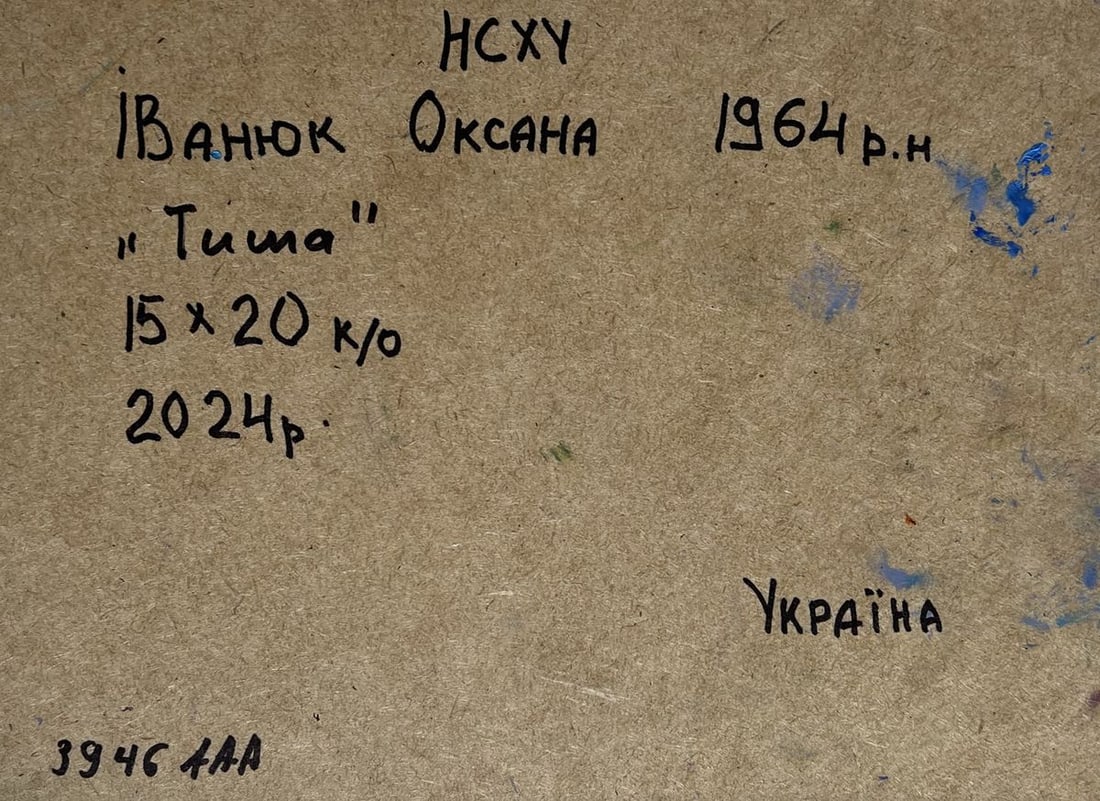 НСХУ
Іванюк Оксана 1964 р.н
„Тиша"
15 х 20 к/о
2024р.
Україна
3946 ААА